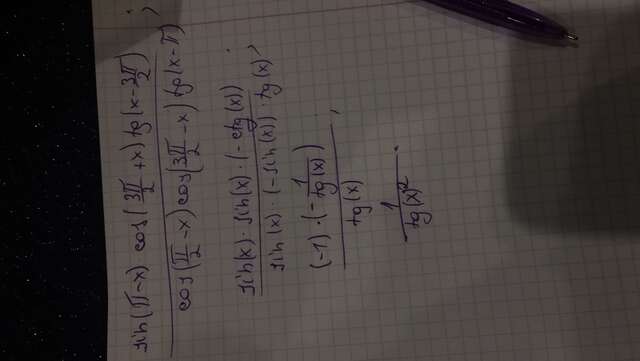 sin(π-x) cos(3π/2 +x) tg(x-3π/2) ;
cos(π/2 -x) cos(3π/2 -x) tg(x-π)
sin(x)· sin(x)·(-ctg(x)) ;
sin(x)·(-sin(x))·tg(x)
(-1)·(-1/tg(x)) ;
tg(x)
1 .
tg(x)²